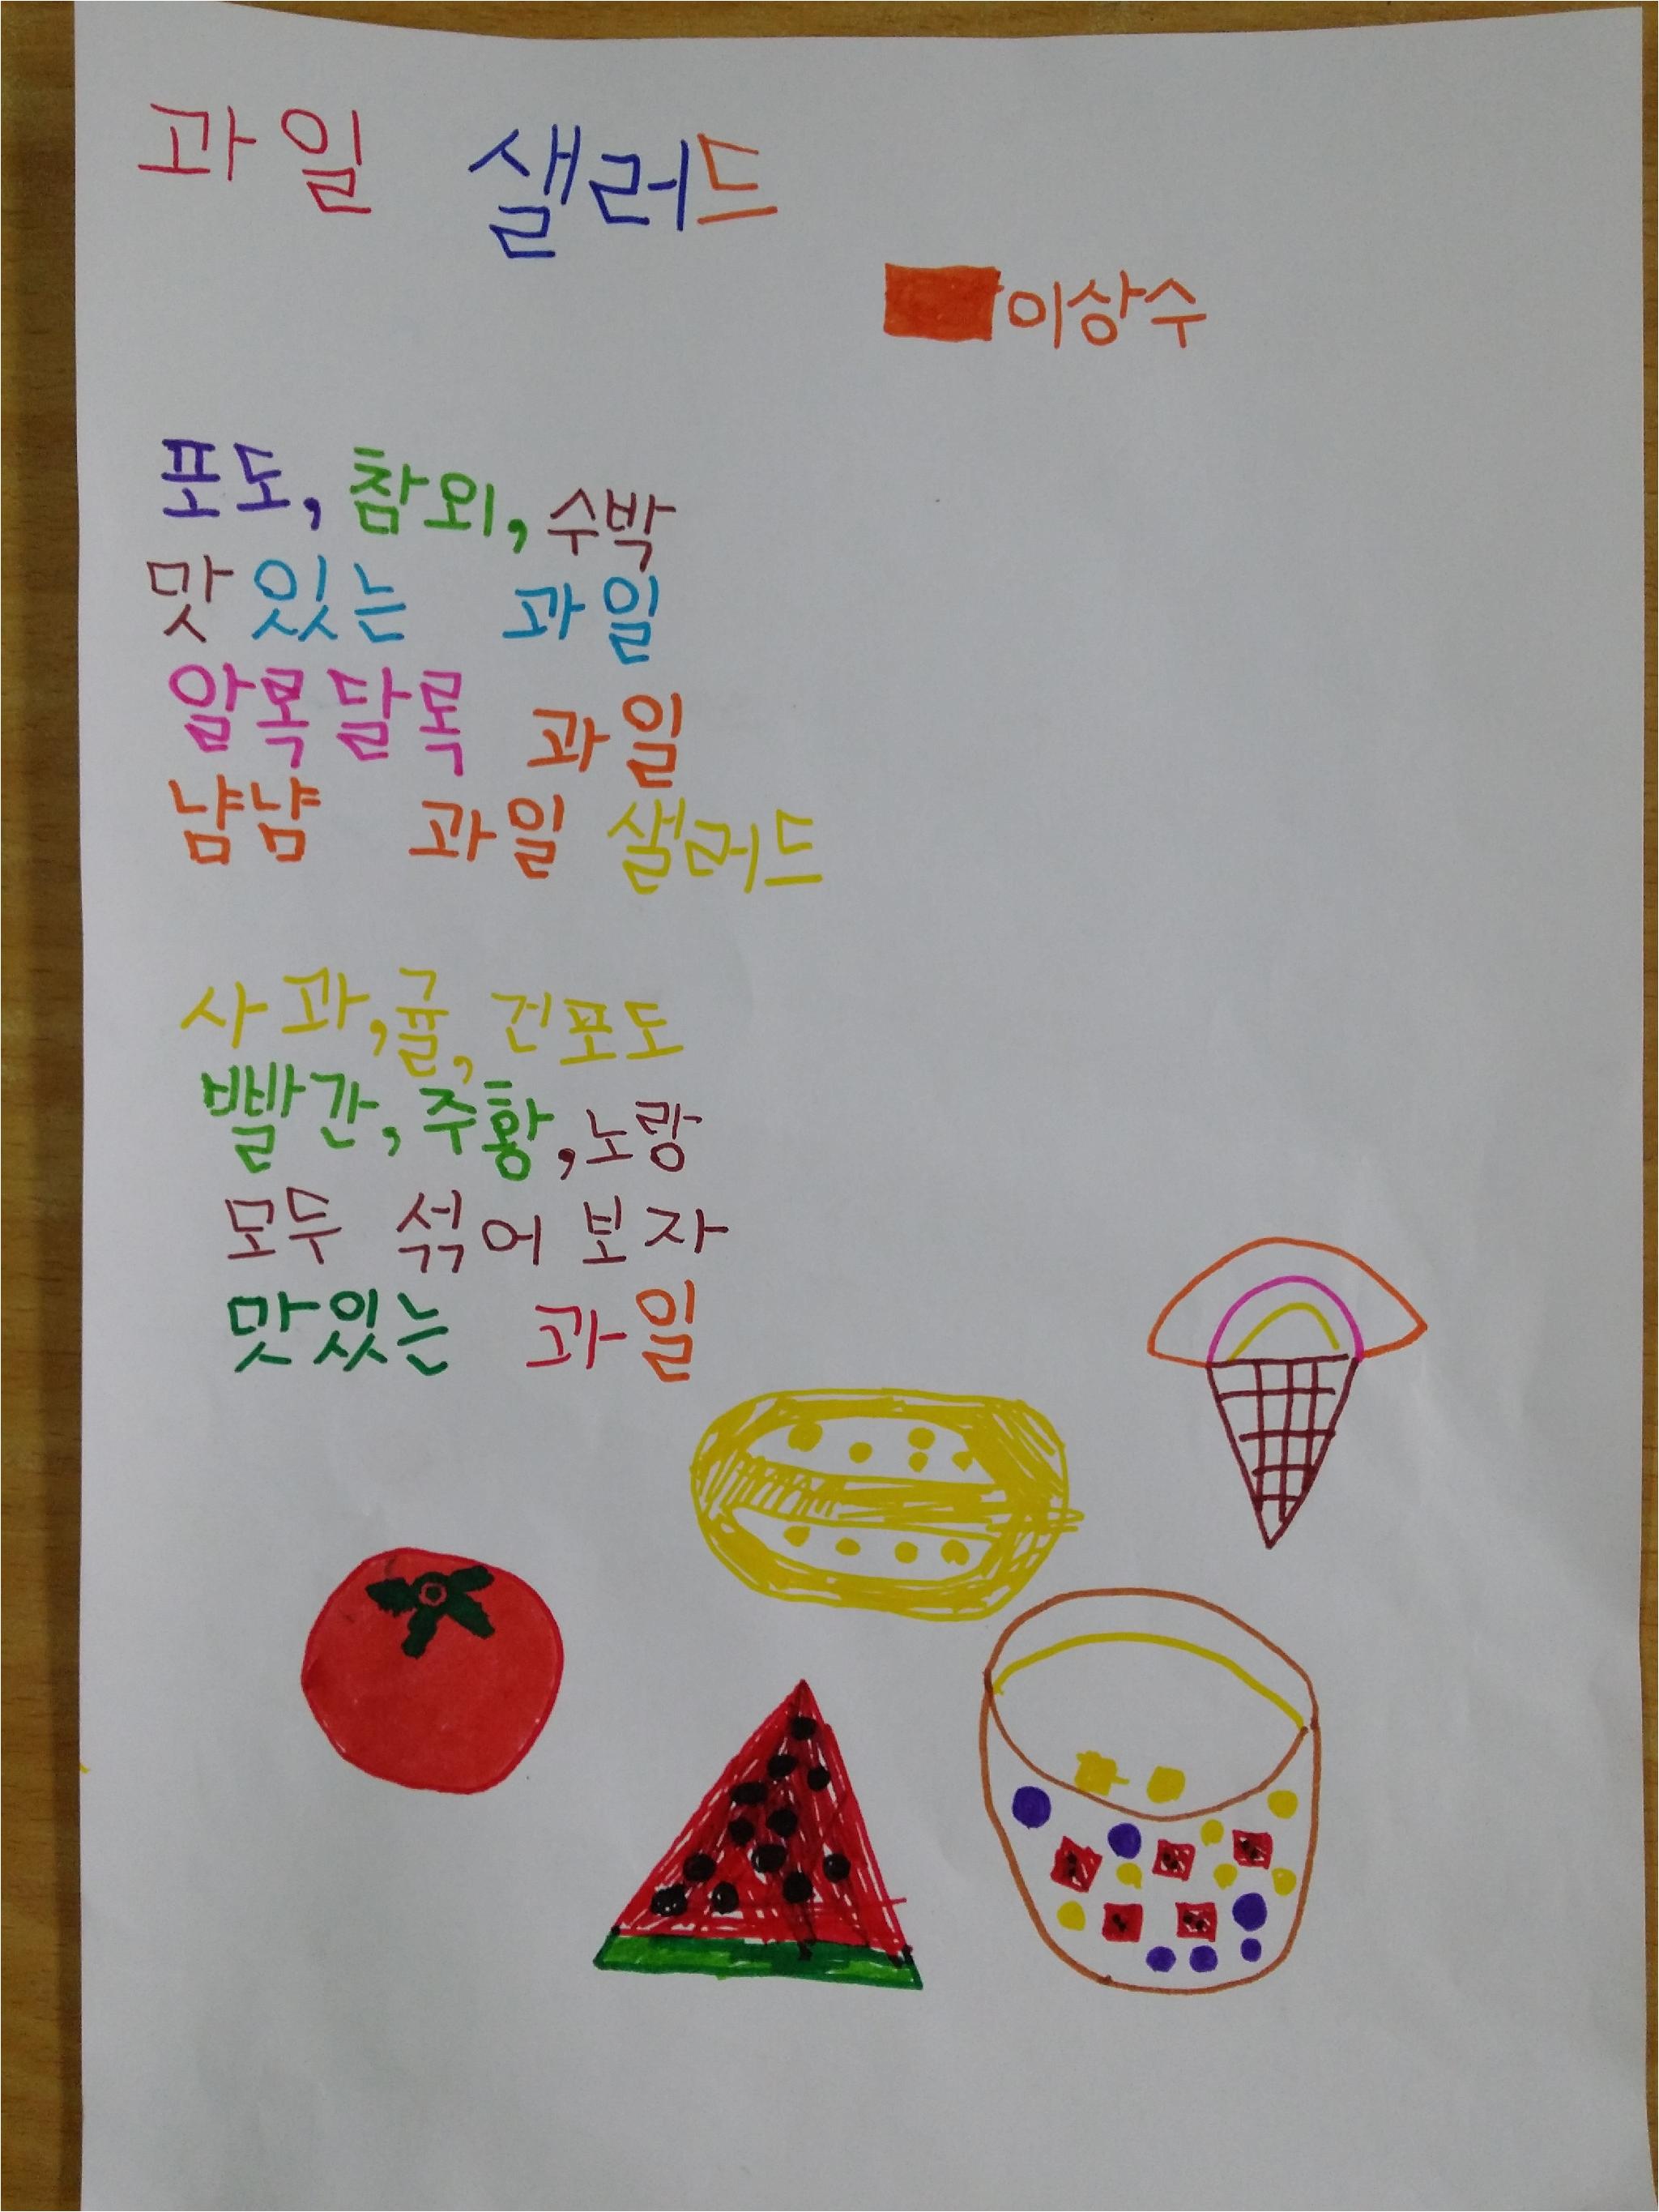 과일 샐러드
이상수
포도, 참외, 수박
맛있는 과일
알록달록 과일
냠냠 과일 샐러드
사과, 귤, 건포도
빨간, 주황, 노랑
모두 섞어 보자
맛있는 과일